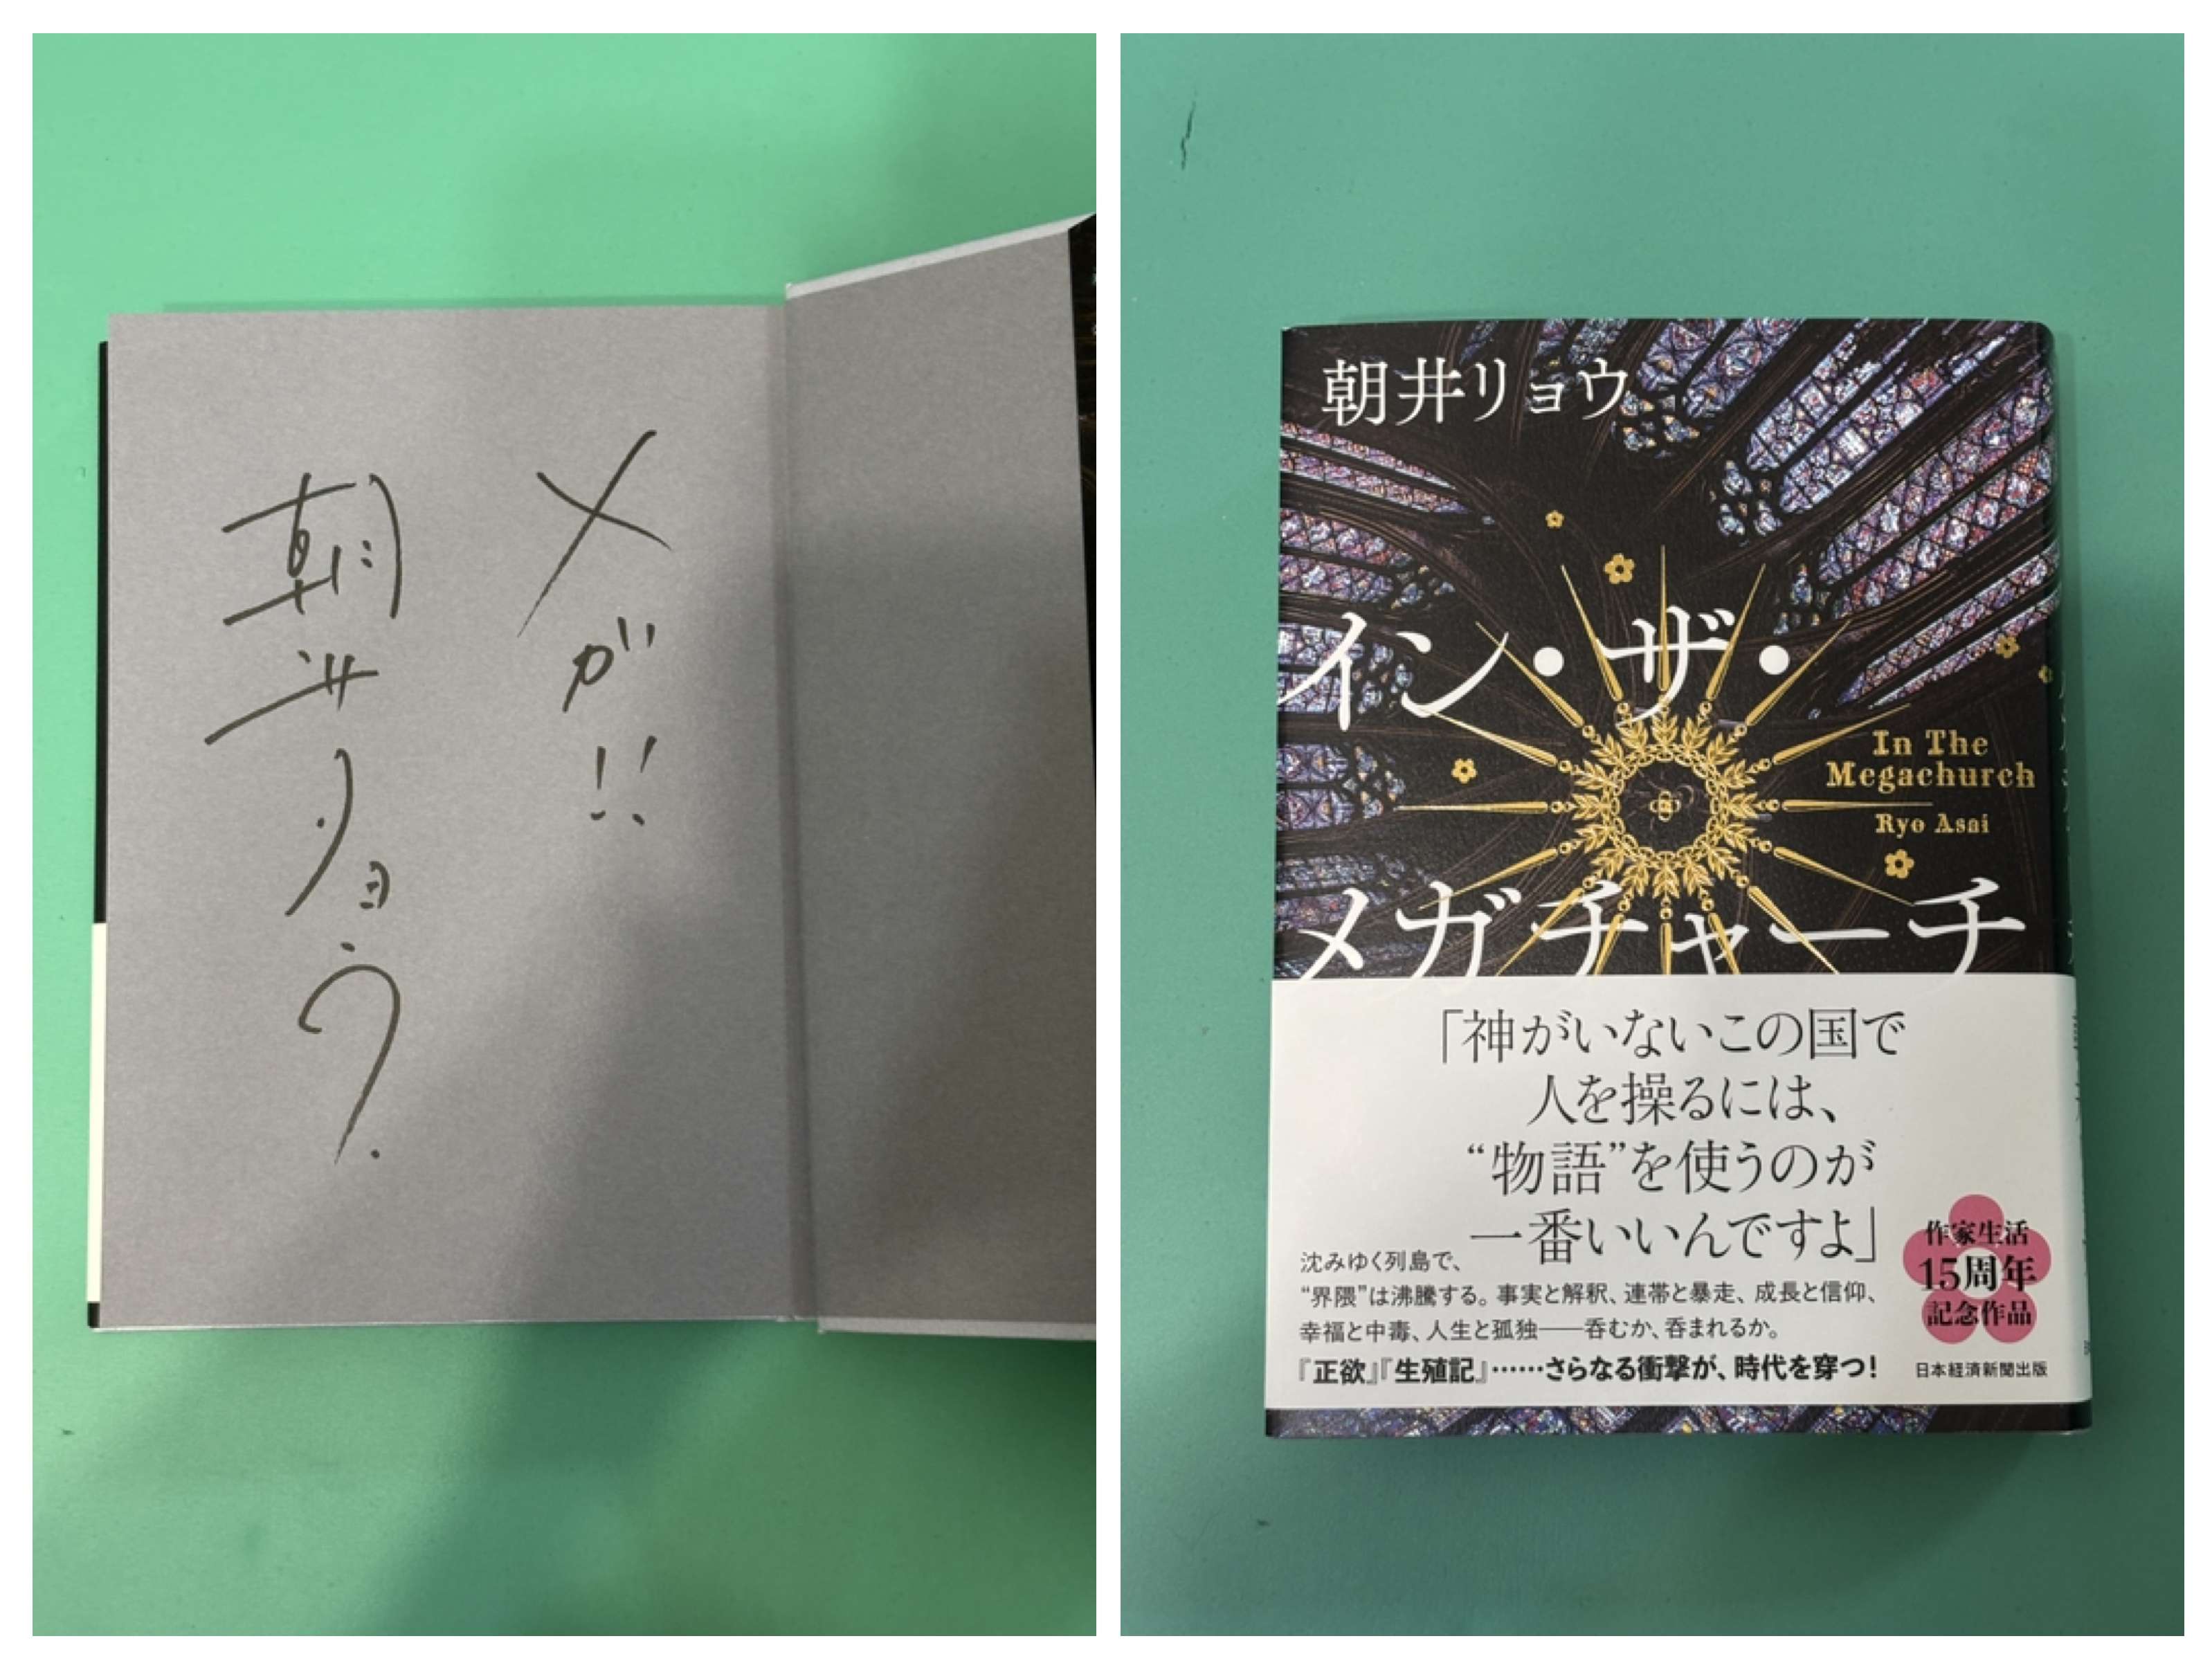 メガ!!
朝井リョウ.
朝井リョウ
イン・ザ・
In The
Megachurch
Ryo Asai
メガチャーチ
「神がいないこの国で
人を操るには、
“物語”を使うのが
一番いいんですよ」
沈みゆく列島で、
“界隈”は沸騰する。事実と解釈、連帯と暴走、成長と信仰、
幸福と中毒、人生と孤独――呑むか、呑まれるか。
『正欲』『生殖記』……さらなる衝撃が、時代を穿つ!
作家生活
15周年
記念作品
日本経済新聞出版